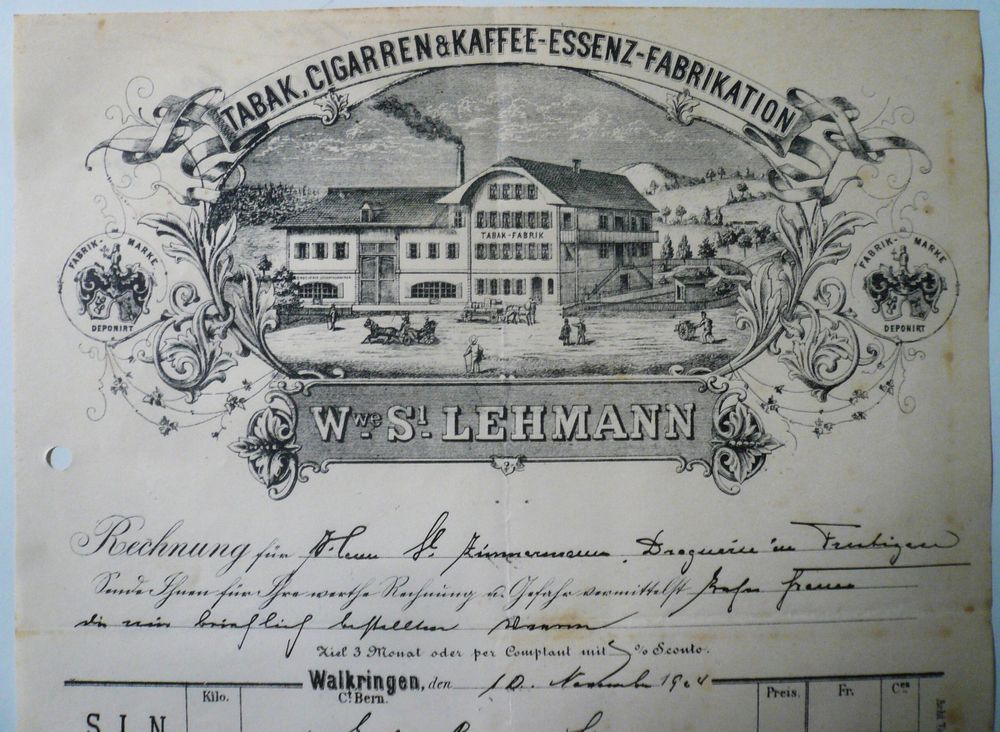 TABAK, CIGARREN & KAFFEE-ESSENZ-FABRIKATION
TABAK-FABRIK
FABRIK-MARKE
DEPONIRT
FABRIK-MARKE
DEPONIRT
Wwe. Sl. LEHMANN
Rechnung für Zimmermann Droguerie in Frutigen
Sende Ihnen für Ihre werthe Rechnung u. Gefahr vermittelst Bahn franco
die mir brieflich bestellten Waaren
Ziel 3 Monat oder per Comptant mit % Sconto.
Walkringen, den 10. November 1904
Ct. Bern.
Kilo. Preis. Fr. Ces
S L N